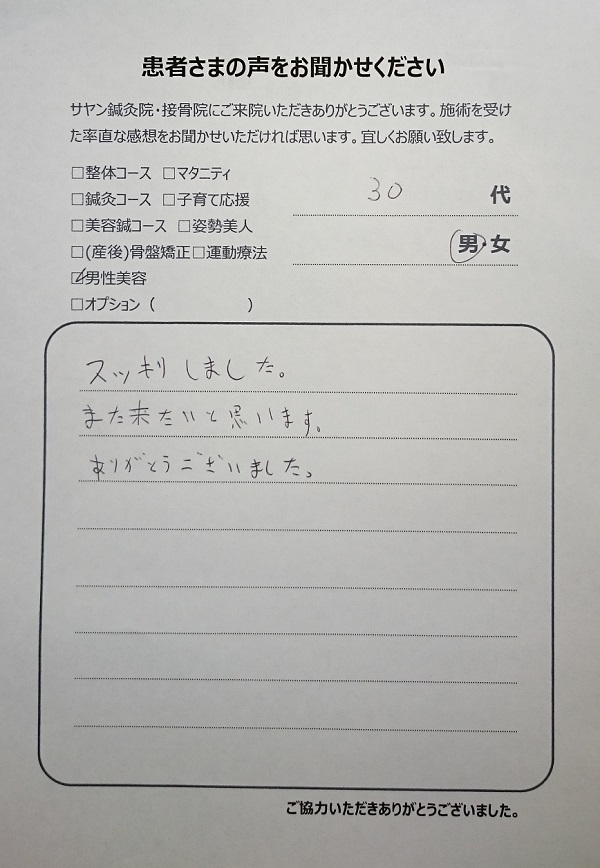 患者さまの声をお聞かせください
サヤン鍼灸院・接骨院にご来院いただきありがとうございます。施術を受け
た率直な感想をお聞かせいただければ思います。宜しくお願い致します。
□整体コース □マタニティ
□鍼灸コース □子育て応援
□美容鍼コース □姿勢美人
□(産後)骨盤矯正□運動療法
☑男性美容
□オプション（ ）
30 代
男・女
スッキリしました。
また来たいと思います。
ありがとうございました。
ご協力いただきありがとうございました。